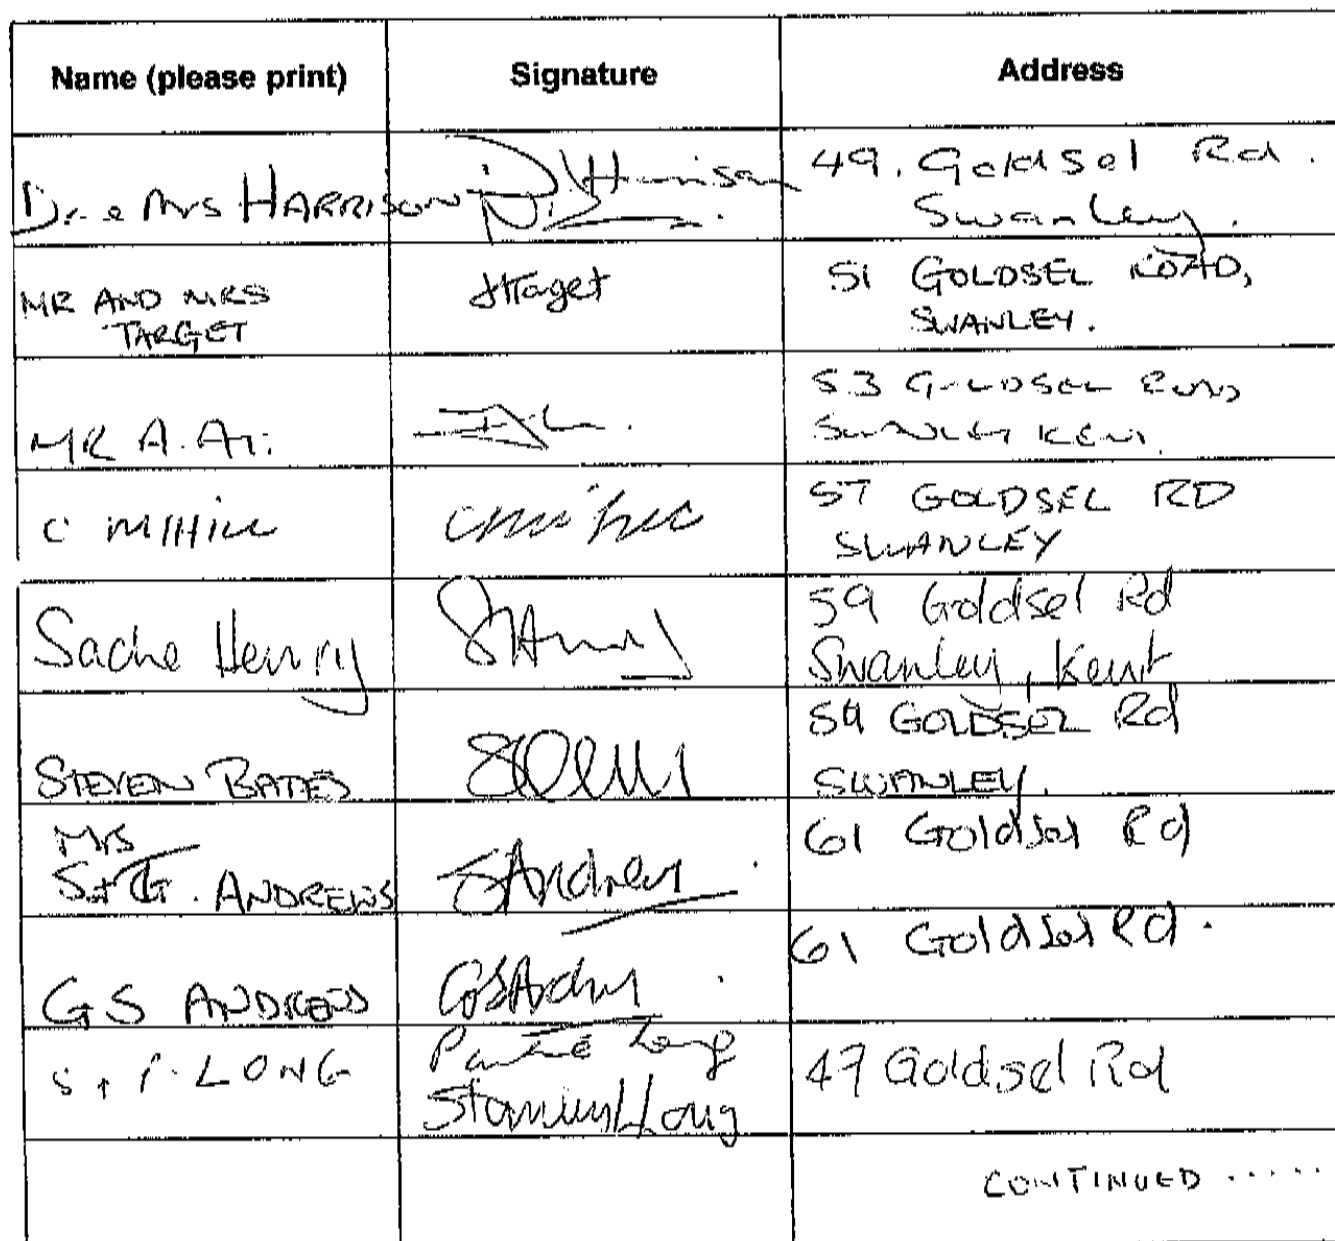 Name (please print) Signature Address
Dr. e Mrs HARRISON D. Harrison 49. Goldsel Rd.
Swanley.
MR AND MRS
TARGET
HTaget
51 GOLDSEL ROAD,
SWANLEY.
MR A.
53 GOLDSEL ROAD
SWANLEY KENT
C
57 GOLDSEL RD
SWANLEY
Sache Henry SHenry 59 Goldsel Rd
Swanley, Kent
STEVEN BATES
59 GOLDSEL Rd
SWANLEY.
MRS
S + G. ANDREWS SAndrews 61 Goldsel Rd
GS ANDREWS GSAndrews 61 Goldsel Rd.
S + P. LONG
Pauline Long
Stanley Long
47 Goldsel Rd
CONTINUED .....